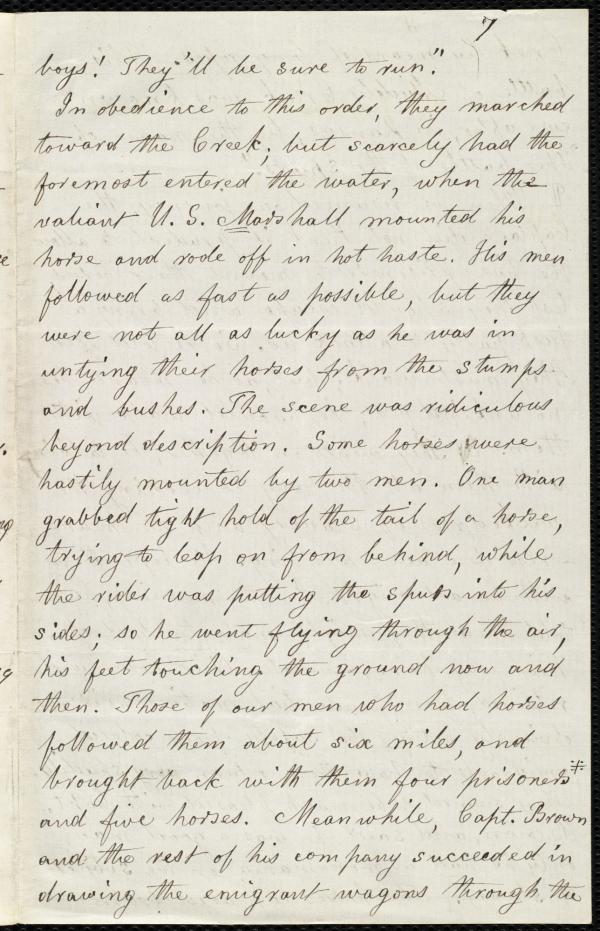 7
boys! They'll be sure to run".
In obedience to this order, they marched
toward the Creek; but scarcely had the
foremost entered the water, when the
valiant U. S. Marshall mounted his
horse and rode off in hot haste. His men
followed as fast as possible, but they
were not all as lucky as he was in
untying their horses from the stumps
and bushes. The scene was ridiculous
beyond description. Some horses were
hastily mounted by two men. One man
grabbed tight hold of the tail of a horse,
trying to leap on from behind, while
the rider was putting the spurs into his
sides; so he went flying through the air,
his feet touching the ground now and
then. Those of our men who had horses
followed them about six miles, and
brought back with them four prisoners ‡
and five horses. Meanwhile, Capt. Brown
and the rest of his company succeeded in
drawing the emigrant wagons through the